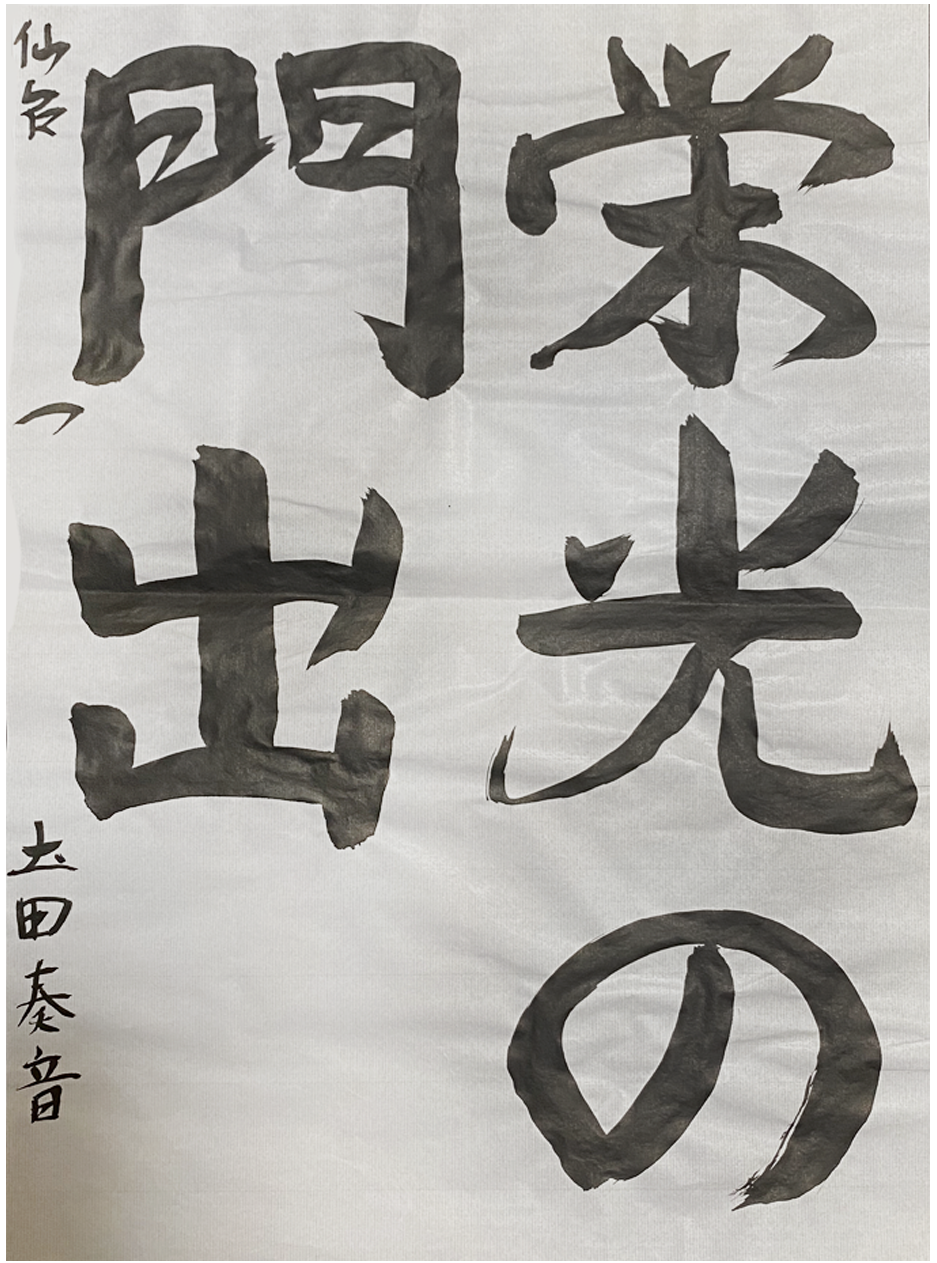 栄光の
門出
仙台一 圡田奏音